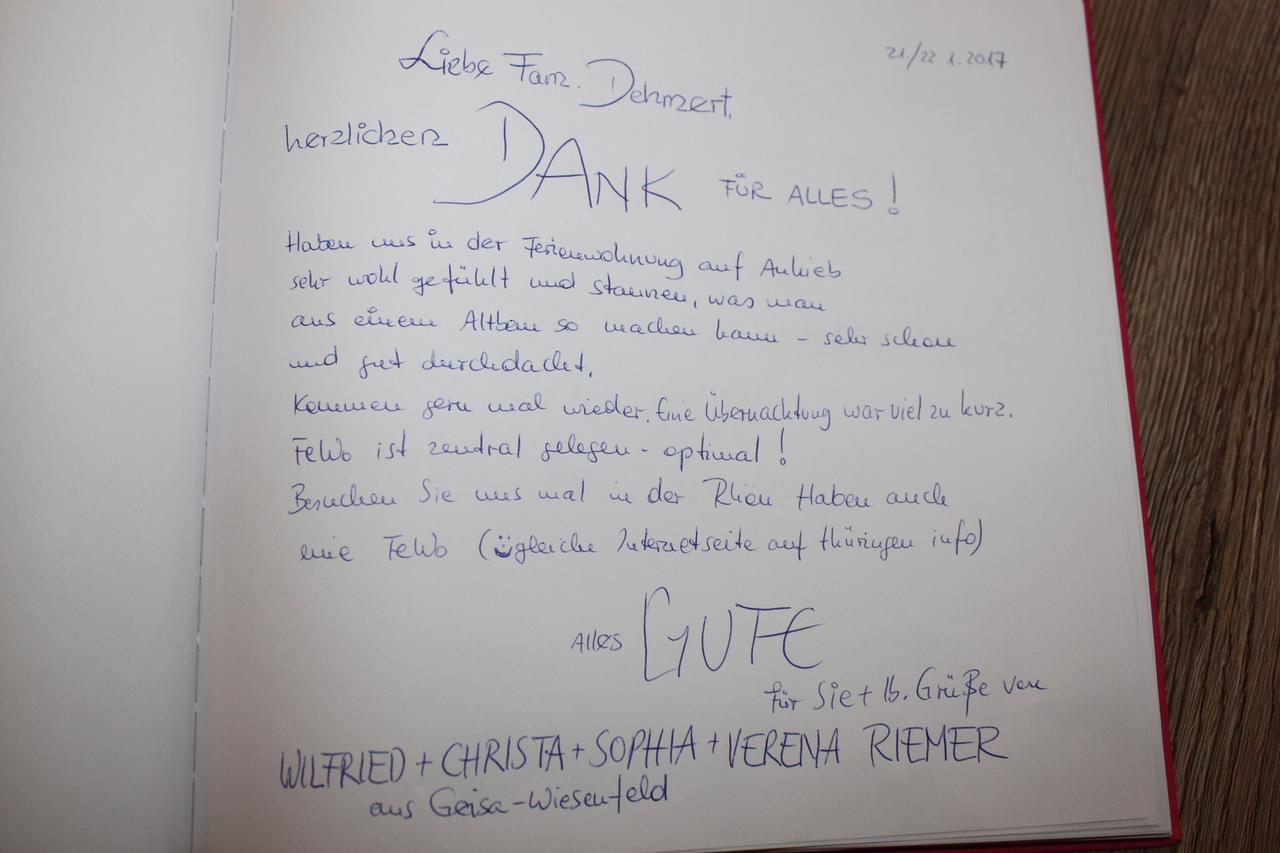 21/22.1.2017
Liebe Fam. Dehmert,
herzlichen DANK FÜR ALLES!
Haben uns in der Ferienwohnung auf Anhieb
sehr wohl gefühlt und staunen, was man
aus einem Altbau so machen kann - sehr schön
und gut durchdacht.
Kommen gern mal wieder. Eine Übernachtung war viel zu kurz.
FeWo ist zentral gelegen - optimal!
Besuchen Sie uns mal in der Rhön. Haben auch
eine FeWo (gleiche Internetseite auf thüringen info)
Alles GUTE
für Sie + lb. Grüße von
WILFRIED + CHRISTA + SOPHIA + VERENA RIEMER
aus Geisa-Wiesenfeld